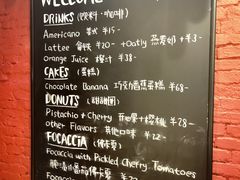 WELCOME
DRINKS (饮料·咖啡)
Americano 美式 ¥15-
Lattee 拿铁 ¥20- +Oatly 燕麦奶 +¥3-
Orange Juice 橙汁 ¥38-
CAKES (蛋糕)
Chocolate Banana 巧克力香蕉蛋糕 ¥68-
DONUTS (甜甜圈)
Pistachio + Cherry 开心果+樱桃 ¥28-
other Flavors 其他口味 ¥12-
FOCACCIA (佛卡夏)
Focaccia with Pickled Cherry Tomatoes
腌渍小番茄佛卡夏